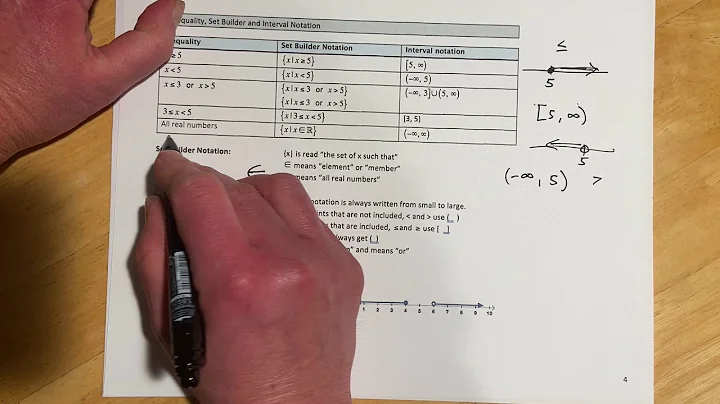 equality, Set Builder and Interval Notation
equality Set Builder Notation Interval notation
≥5 {x|x≥5} [5,∞)
x<5 {x|x<5} (-∞,5)
x≤3 or x>5 {x|x≤3 or x>5} (-∞,3]∪(5,∞)
{x|x≤3 or x>5}
3≤x<5 {x|3≤x<5} [3,5)
All real numbers {x|x∈ℝ} (-∞,∞)
Builder Notation: {x| is read "the set of x such that"
∈ means "element" or "member"
means "all real numbers"
notation is always written from small to large.
ints that are not included, < and > use (_)
that are included, ≤ and ≥ use [_]
ways get (_)
and means "or"
1 2 3 4 5 6 7 8 9 10
4
≤
5
[5,∞)
5
(-∞,5) >
∈